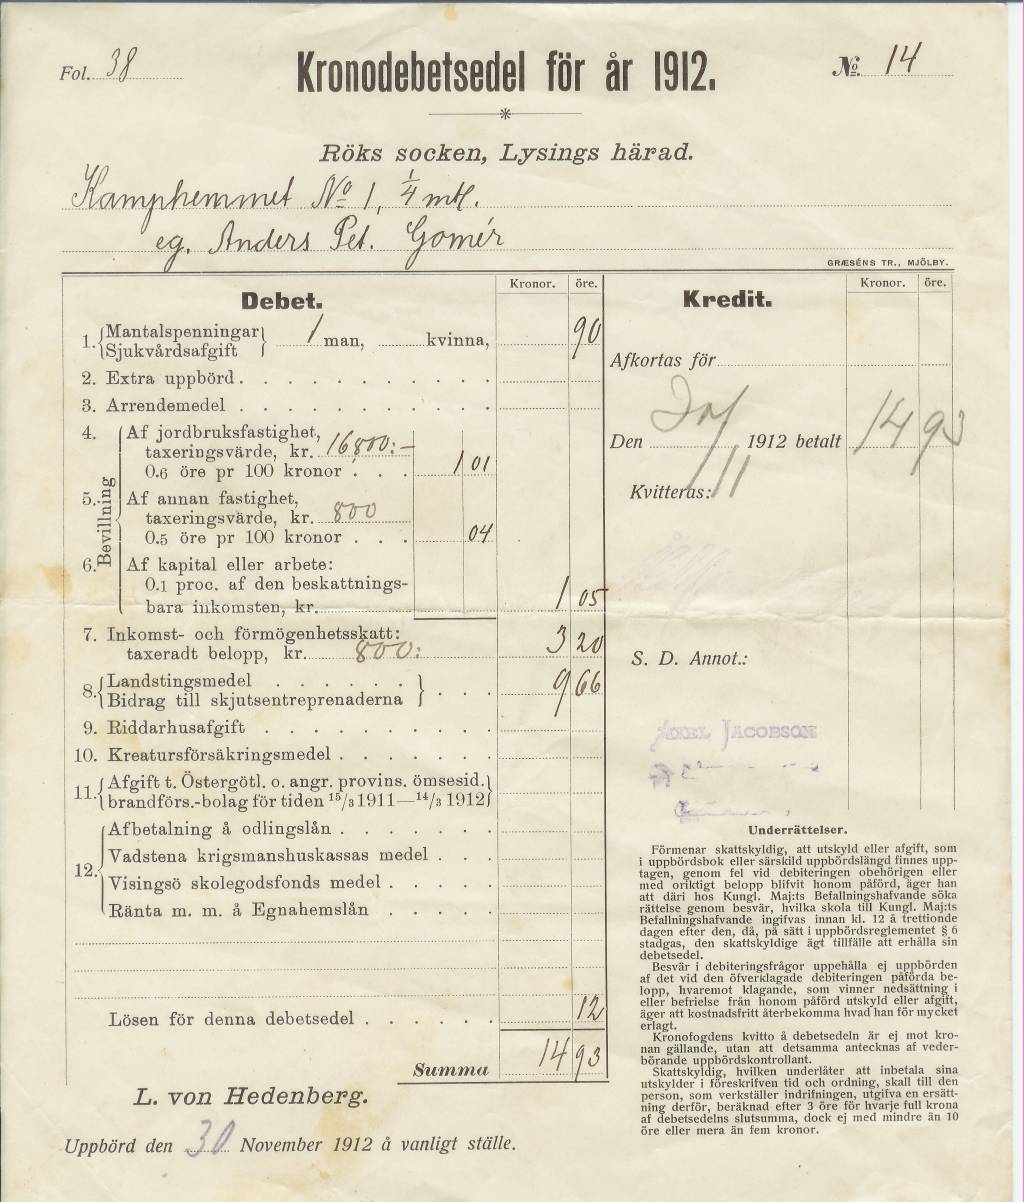 Fol. 38
Kronodebetsedel för år 1912.
№ 14
Röks socken, Lysings härad.
Kamphemmet No 1, 1/4 mtl.
eg. Anders Pet. Gomér
GRÆSÉNS TR., MJÖLBY.
Debet.
Kronor. öre.
1. Mantalspenningar
Sjukvårdsafgift
1 man, kvinna, 90
2. Extra uppbörd
3. Arrendemedel
Bevillning
4. Af jordbruksfastighet,
taxeringsvärde, kr. 16,800:-
0.6 öre pr 100 kronor 1 01
5. Af annan fastighet,
taxeringsvärde, kr. 800
0.5 öre pr 100 kronor 04
6. Af kapital eller arbete:
0.1 proc. af den beskattnings-
bara inkomsten, kr. 1 05
7. Inkomst- och förmögenhetsskatt:
taxeradt belopp, kr. 800: 3 20
8. Landstingsmedel
Bidrag till skjutsentreprenaderna 9 66
9. Riddarhusafgift
10. Kreatursförsäkringsmedel
11. Afgift t. Östergötl. o. angr. provins. ömsesid.
brandförs.-bolag för tiden 15/3 1911—14/3 1912
12. Afbetalning å odlingslån
Vadstena krigsmanshuskassas medel
Visingsö skolegodsfonds medel
Ränta m. m. å Egnahemslån
Lösen för denna debetsedel 12
Summa 14 93
L. von Hedenberg.
Uppbörd den 30 November 1912 å vanligt ställe.
Kredit.
Kronor. öre.
Afkortas för
Den 1912 betalt 14 93
Kvitteras:
S. D. Annot.:
AXEL JACOBSON
Underrättelser.
Förmenar skattskyldig, att utskyld eller afgift, som
i uppbördsbok eller särskild uppbördslängd finnes upp-
tagen, genom fel vid debiteringen obehörigen eller
med oriktigt belopp blifvit honom påförd, äger han
att däri hos Kungl. Maj:ts Befallningshafvande söka
rättelse genom besvär, hvilka skola till Kungl. Maj:ts
Befallningshafvande ingifvas innan kl. 12 å trettionde
dagen efter den, då, på sätt i uppbördsreglementet § 6
stadgas, den skattskyldige ägt tillfälle att erhålla sin
debetsedel.
Besvär i debiteringsfrågor uppehålla ej uppbörden
af det vid den öfverklagade debiteringen påförda be-
lopp, hvaremot klagande, som vinner nedsättning i
eller befrielse från honom påförd utskyld eller afgift,
äger att kostnadsfritt återbekomma hvad han för mycket
erlagt.
Kronofogdens kvitto å debetsedeln är ej mot kro-
nan gällande, utan att detsamma antecknas af veder-
börande uppbördskontrollant.
Skattskyldig, hvilken underlåter att inbetala sina
utskylder i föreskrifven tid och ordning, skall till den
person, som verkställer indrifningen, utgifva en ersätt-
ning derför, beräknad efter 3 öre för hvarje full krona
af debetsedelns slutsumma, dock ej med mindre än 10
öre eller mera än fem kronor.